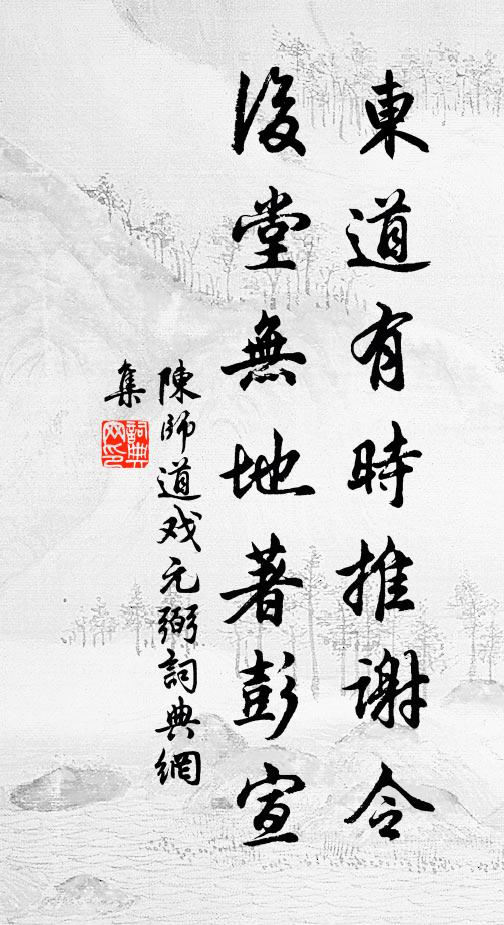 東道有時推謝令
後堂無地著彭宣
陳師道戏元弼詞典網
集
詞典网印